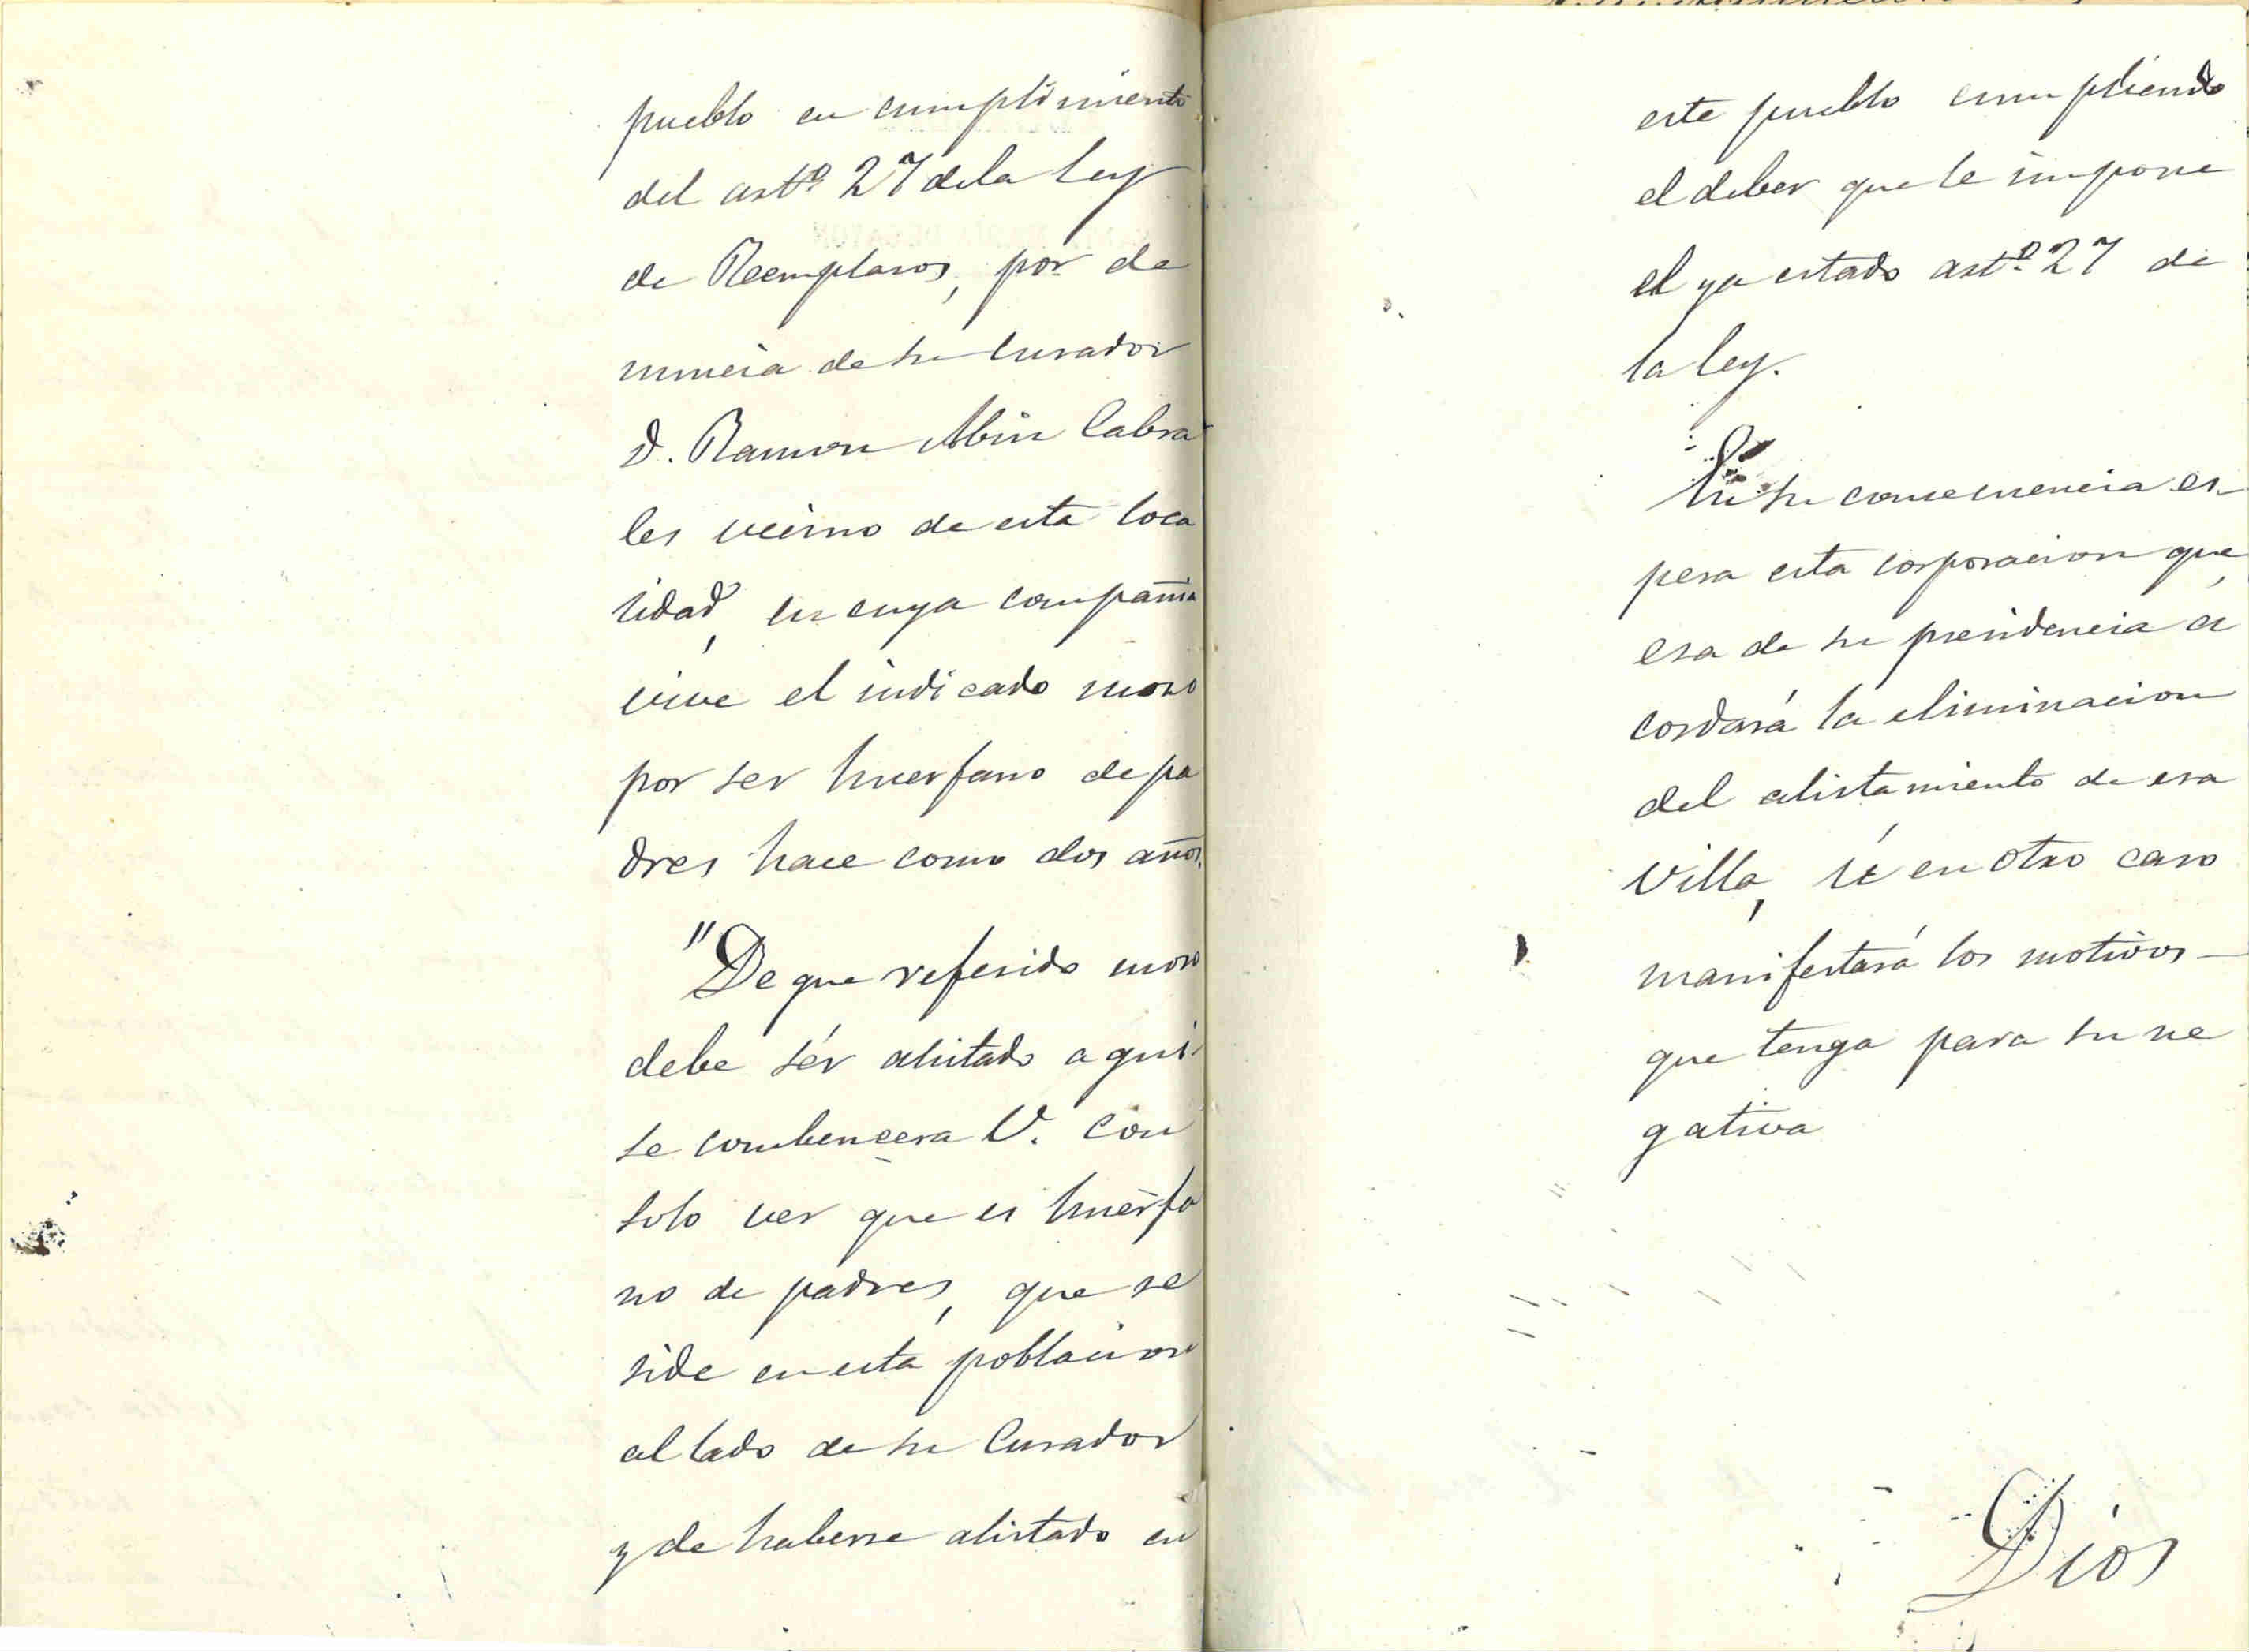 pueblo en cumplimiento
del artº 27 de la ley
de Reemplasos, por de
nuncia de su Curador
D. Ramon Abin Cabra
les vecino de esta loca
lidad, en cuya compañia
vive el indicado moso
por ser huerfano de pa
dres hace como dos años.
"De que referido moso
debe sér alistado aqui
se combencera V. con
solo ver que es huérfa
no de padres, que re
side en esta poblacion
al lado de su Curador
y de haberse alistado en
este pueblo cumpliendo
el deber que le impone
el ya citado artº 27 de
la ley.
En su consecuencia es-
pera esta corporacion que,
esa de su presidencia a
cordará la eliminacion
del alistamiento de esa
Villa, ú en otro caso
manifestará los motivos
que tenga para su ne
gativa
Dios